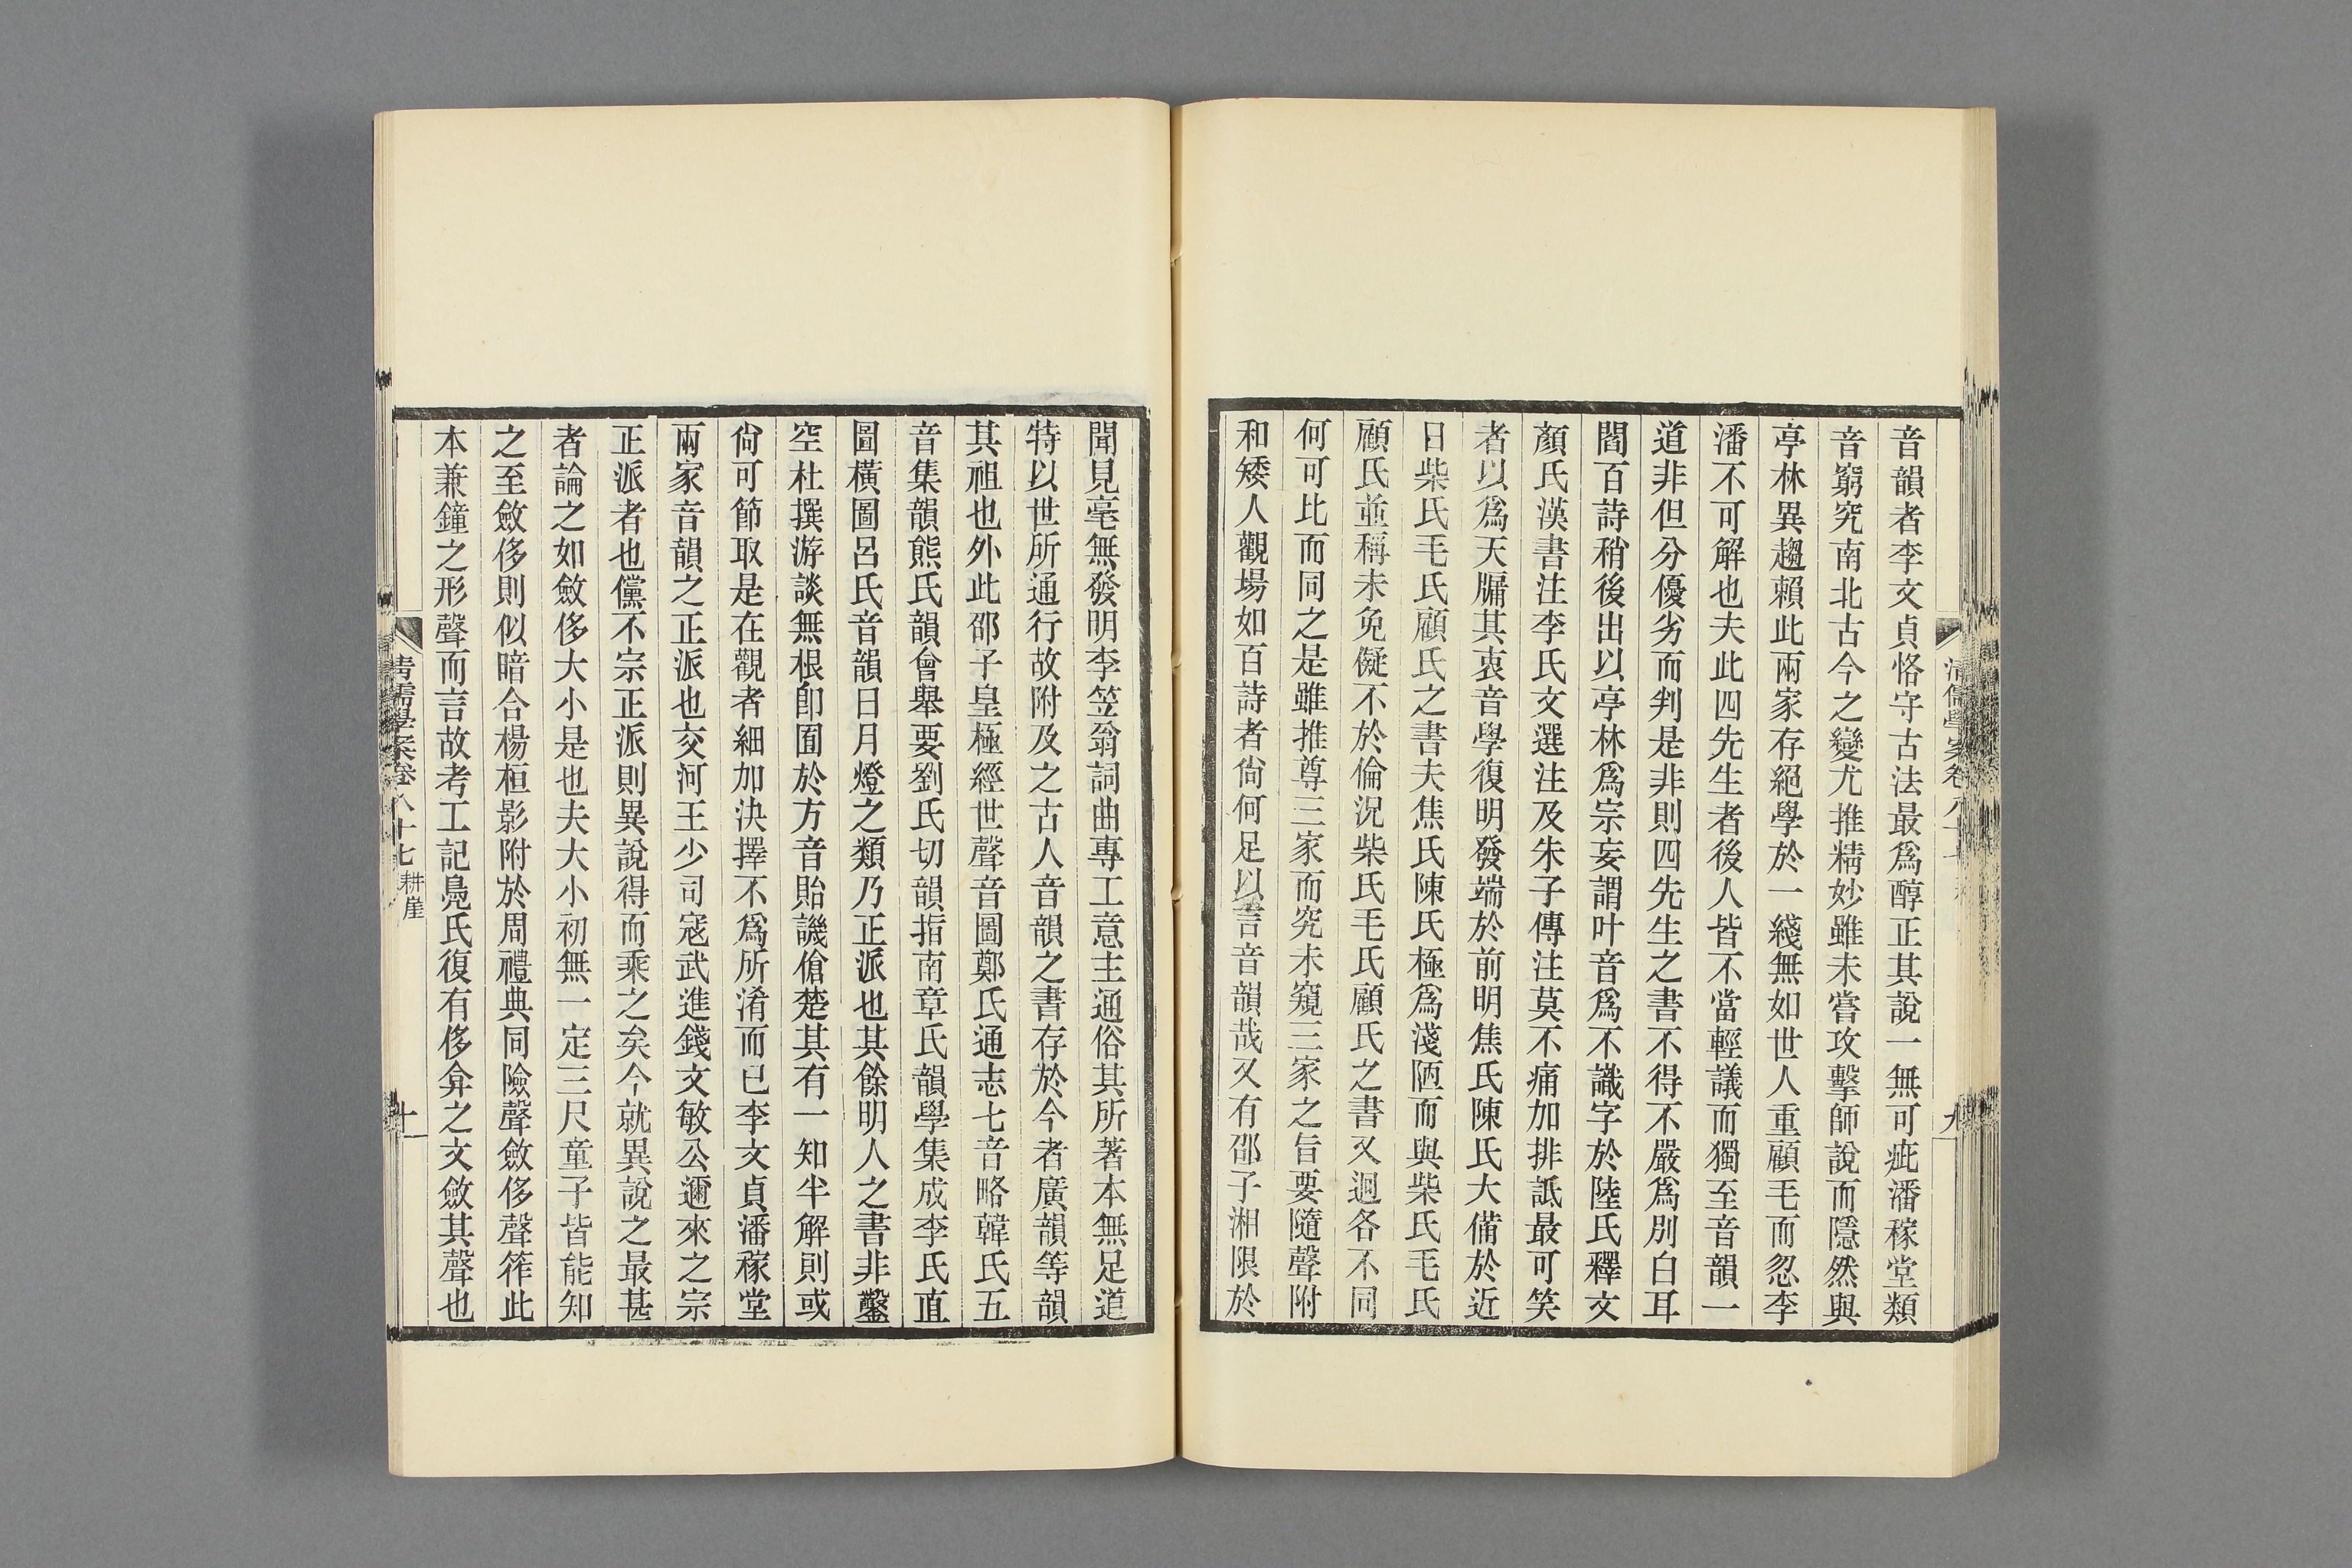 音韻者李文貞恪守古法最爲醇正其說一無可疵潘稼堂類
音窮究南北古今之變尤推精妙雖未嘗攻擊師說而隱然與
亭林異趨賴此兩家存絕學於一綫無如世人重顧毛而忽李
潘不可解也夫此四先生者後人皆不當輕議而獨至音韻一
道非但分優劣而判是非則四先生之書不得不嚴爲別白耳
閻百詩稍後出以亭林爲宗妄謂叶音爲不識字於陸氏釋文
顏氏漢書注李氏文選注及朱子傳注莫不痛加排詆最可笑
者以爲天牖其衷音學復明發端於前明焦氏陳氏大備於近
日柴氏毛氏顧氏之書夫焦氏陳氏極爲淺陋而與柴氏毛氏
顧氏並稱未免儗不於倫況柴氏毛氏顧氏之書又迥各不同
何可比而同之是雖推尊三家而究未窺三家之旨要隨聲附
和矮人觀場如百詩者尙何足以言音韻哉又有邵子湘限於
清儒學案卷八十七
九
聞見毫無發明李笠翁詞曲專工意主通俗其所著本無足道
特以世所通行故附及之古人音韻之書存於今者廣韻等韻
其祖也外此邵子皇極經世聲音圖鄭氏通志七音略韓氏五
音集韻熊氏韻會舉要劉氏切韻指南章氏韻學集成李氏直
圖橫圖呂氏音韻日月燈之類乃正派也其餘明人之書非鑿
空杜撰游談無根卽囿於方音貽譏傖楚其有一知半解則或
尙可節取是在觀者細加決擇不爲所淆而已李文貞潘稼堂
兩家音韻之正派也交河王少司寇武進錢文敏公邇來之宗
正派者也儻不宗正派則異說得而乘之矣今就異說之最甚
者論之如斂侈大小是也夫大小初無一定三尺童子皆能知
之至斂侈則似暗合楊桓影附於周禮典同險聲斂侈聲筰此
本兼鐘之形聲而言故考工記鳧氏復有侈弇之文斂其聲也
清儒學案卷八十七 耕崖
十